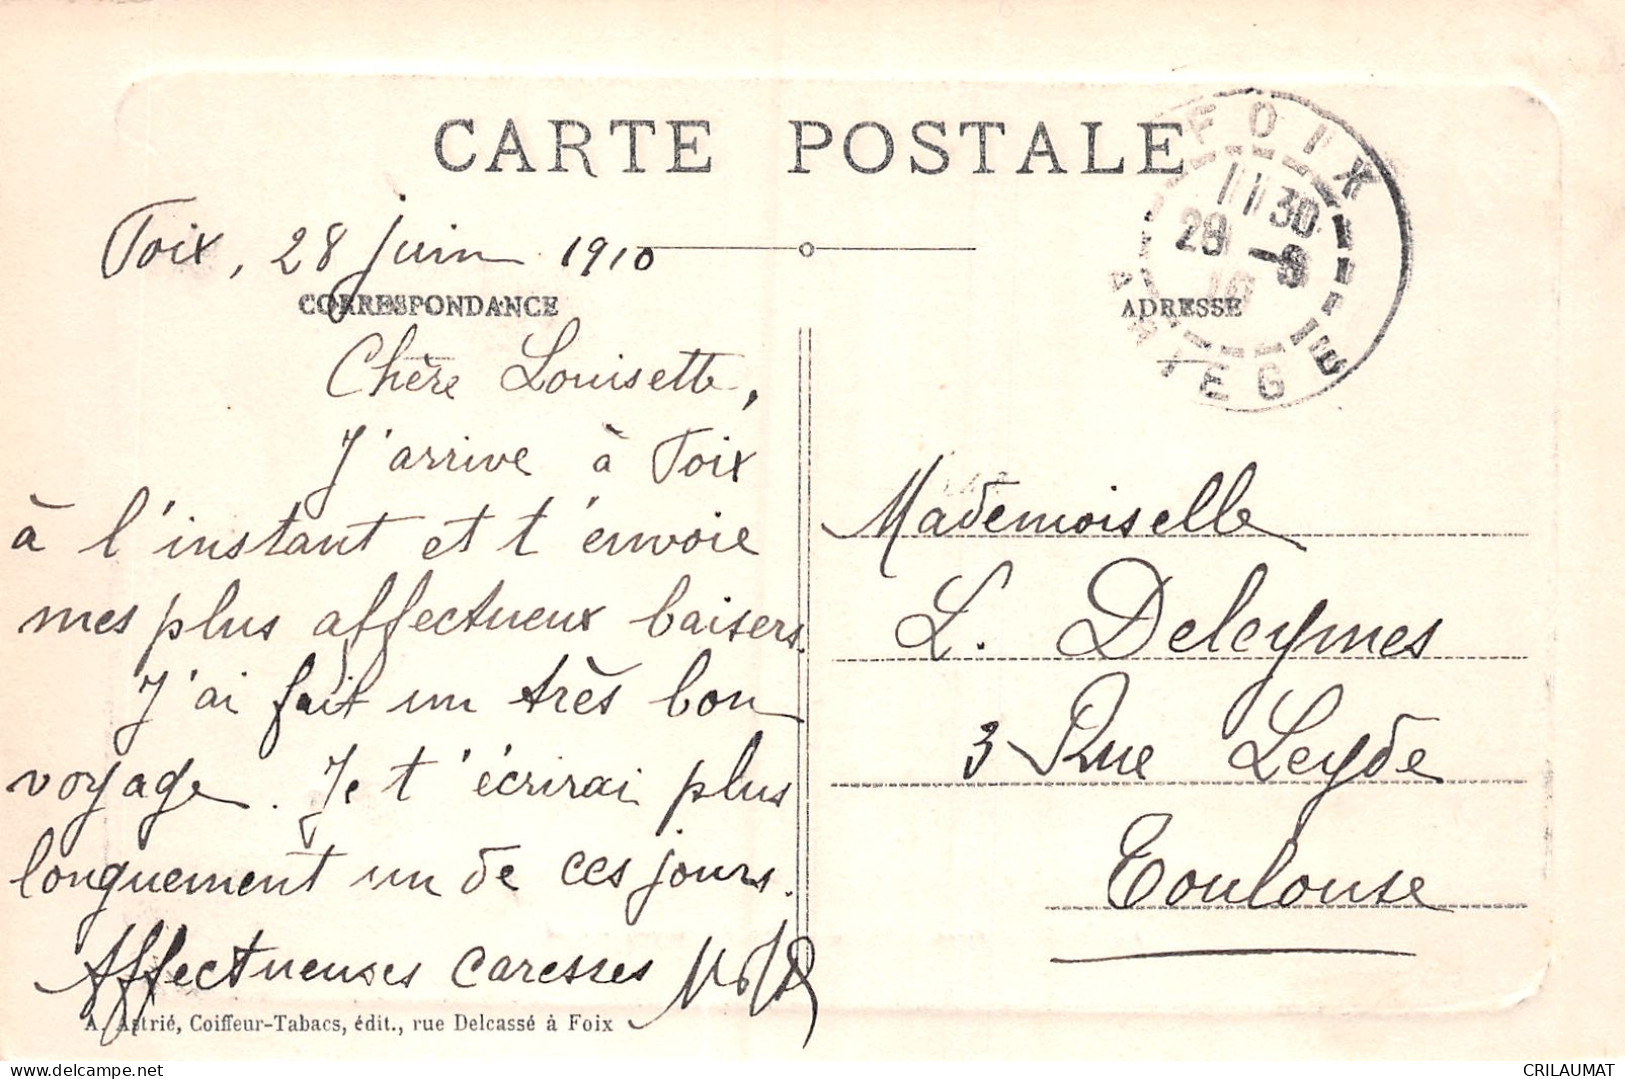 CARTE POSTALE
FOIX
11 30
28 -6
10
ARIEGE
Foix, 28 juin 1910
CORRESPONDANCE
ADRESSE
Chère Louisette,
J'arrive à Foix
à l'instant et t'envoie
mes plus affectueux baisers.
J'ai fait un très bon
voyage. Je t'écrirai plus
longuement un de ces jours.
Affectueuses caresses
Mademoiselle
L. Delcymes
3 Rue Leyde
Toulouse
A. Astrié, Coiffeur-Tabacs, édit., rue Delcassé à Foix
CRILAUMAT